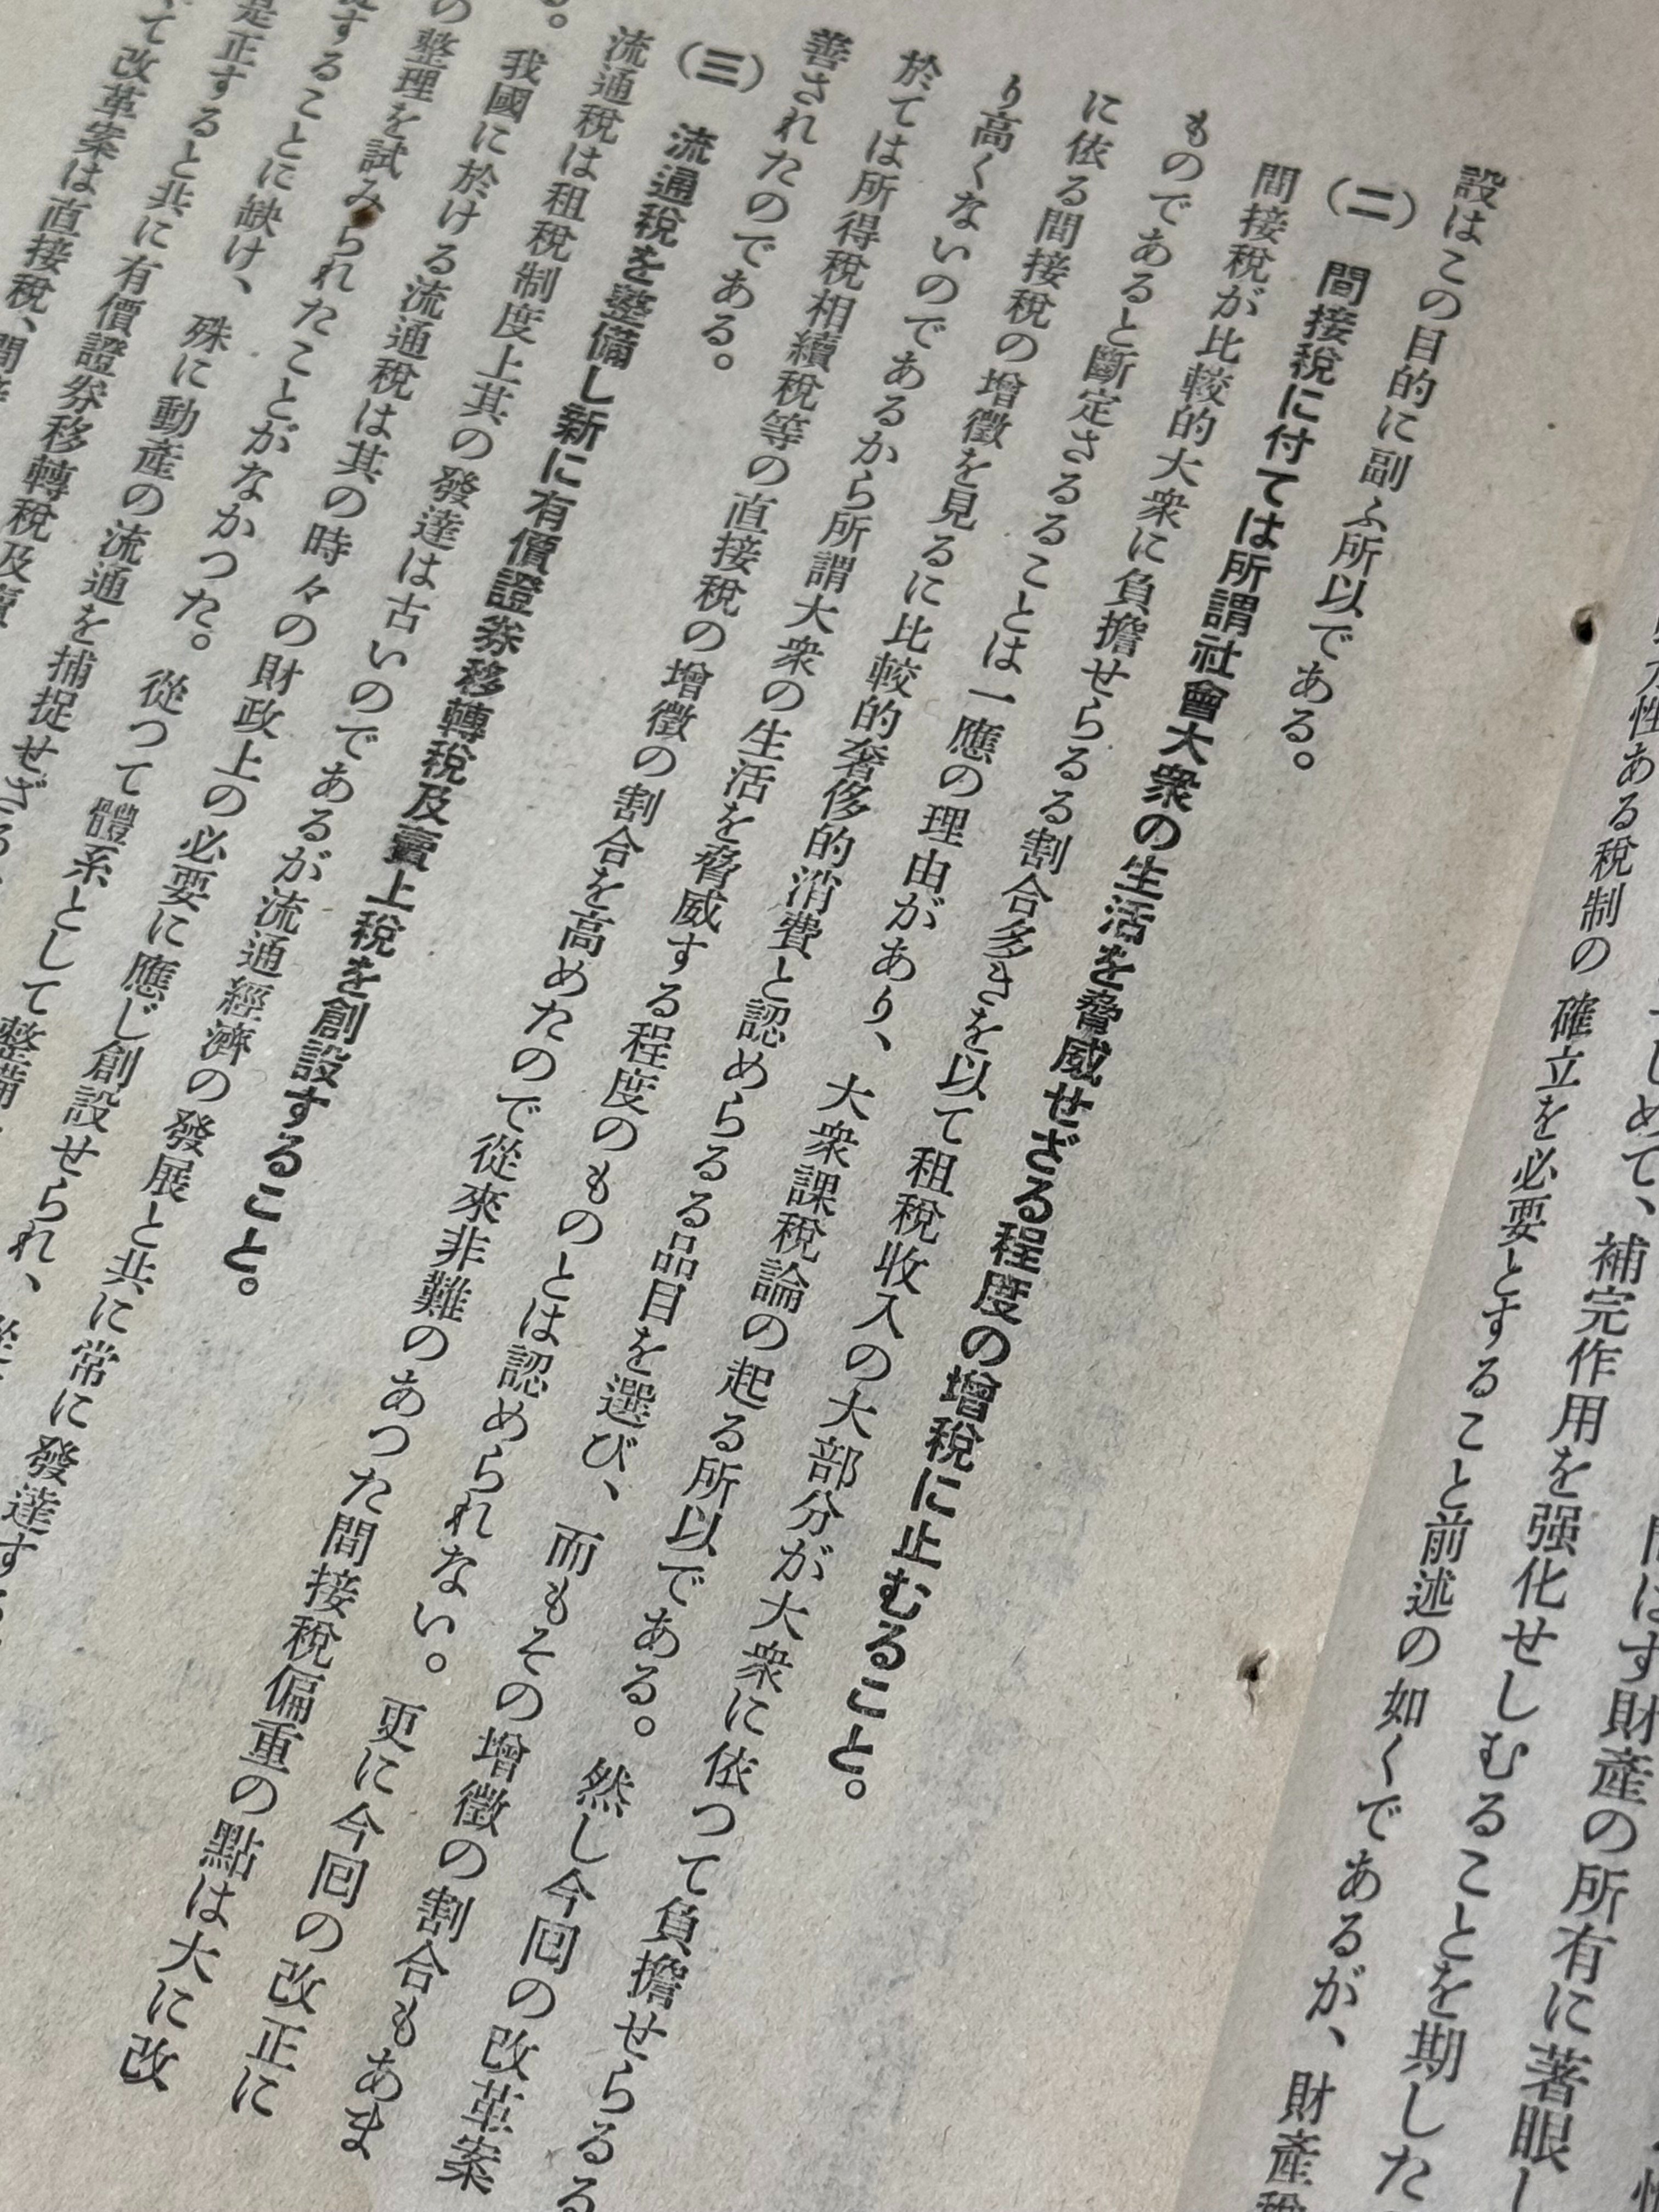 はす財產の所有に著眼し
しめて、補完作用を强化せしむることを期した
力性ある稅制の確立を必要とすること前述の如くであるが、財產稅
設はこの目的に副ふ所以である。
(二) 間接稅に付ては所謂社會大衆の生活を脅威せざる程度の增稅に止むること。
間接稅が比較的大衆に負擔せらるる割合多きを以て租稅收入の大部分が大衆に依つて負擔せらるる
ものであると斷定さるることは一應の理由があり、大衆課稅論の起る所以である。然し今囘の改革案
に依る間接稅の增徵を見るに比較的奢侈的消費と認めらるる品目を選び、而もその增徵の割合もあま
り高くないのであるから所謂大衆の生活を脅威する程度のものとは認められない。更に今囘の改正に
於ては所得稅相續稅等の直接稅の增徵の割合を高めたので從來非難のあつた間接稅偏重の點は大に改
善されたのである。
(三) 流通稅を整備し新に有價證券移轉稅及賣上稅を創設すること。
流通稅は租稅制度上其の發達は古いのであるが流通經濟の發展と共に常に發達す
る。我國に於ける流通稅は其の時々の財政上の必要に應じ創設せられ、
の整理を試みられたことがなかつた。從つて體系として整備
することに缺け、殊に動產の流通を捕捉せざる
是正すると共に有價證券移轉稅及賣
て改革案は直接稅、間